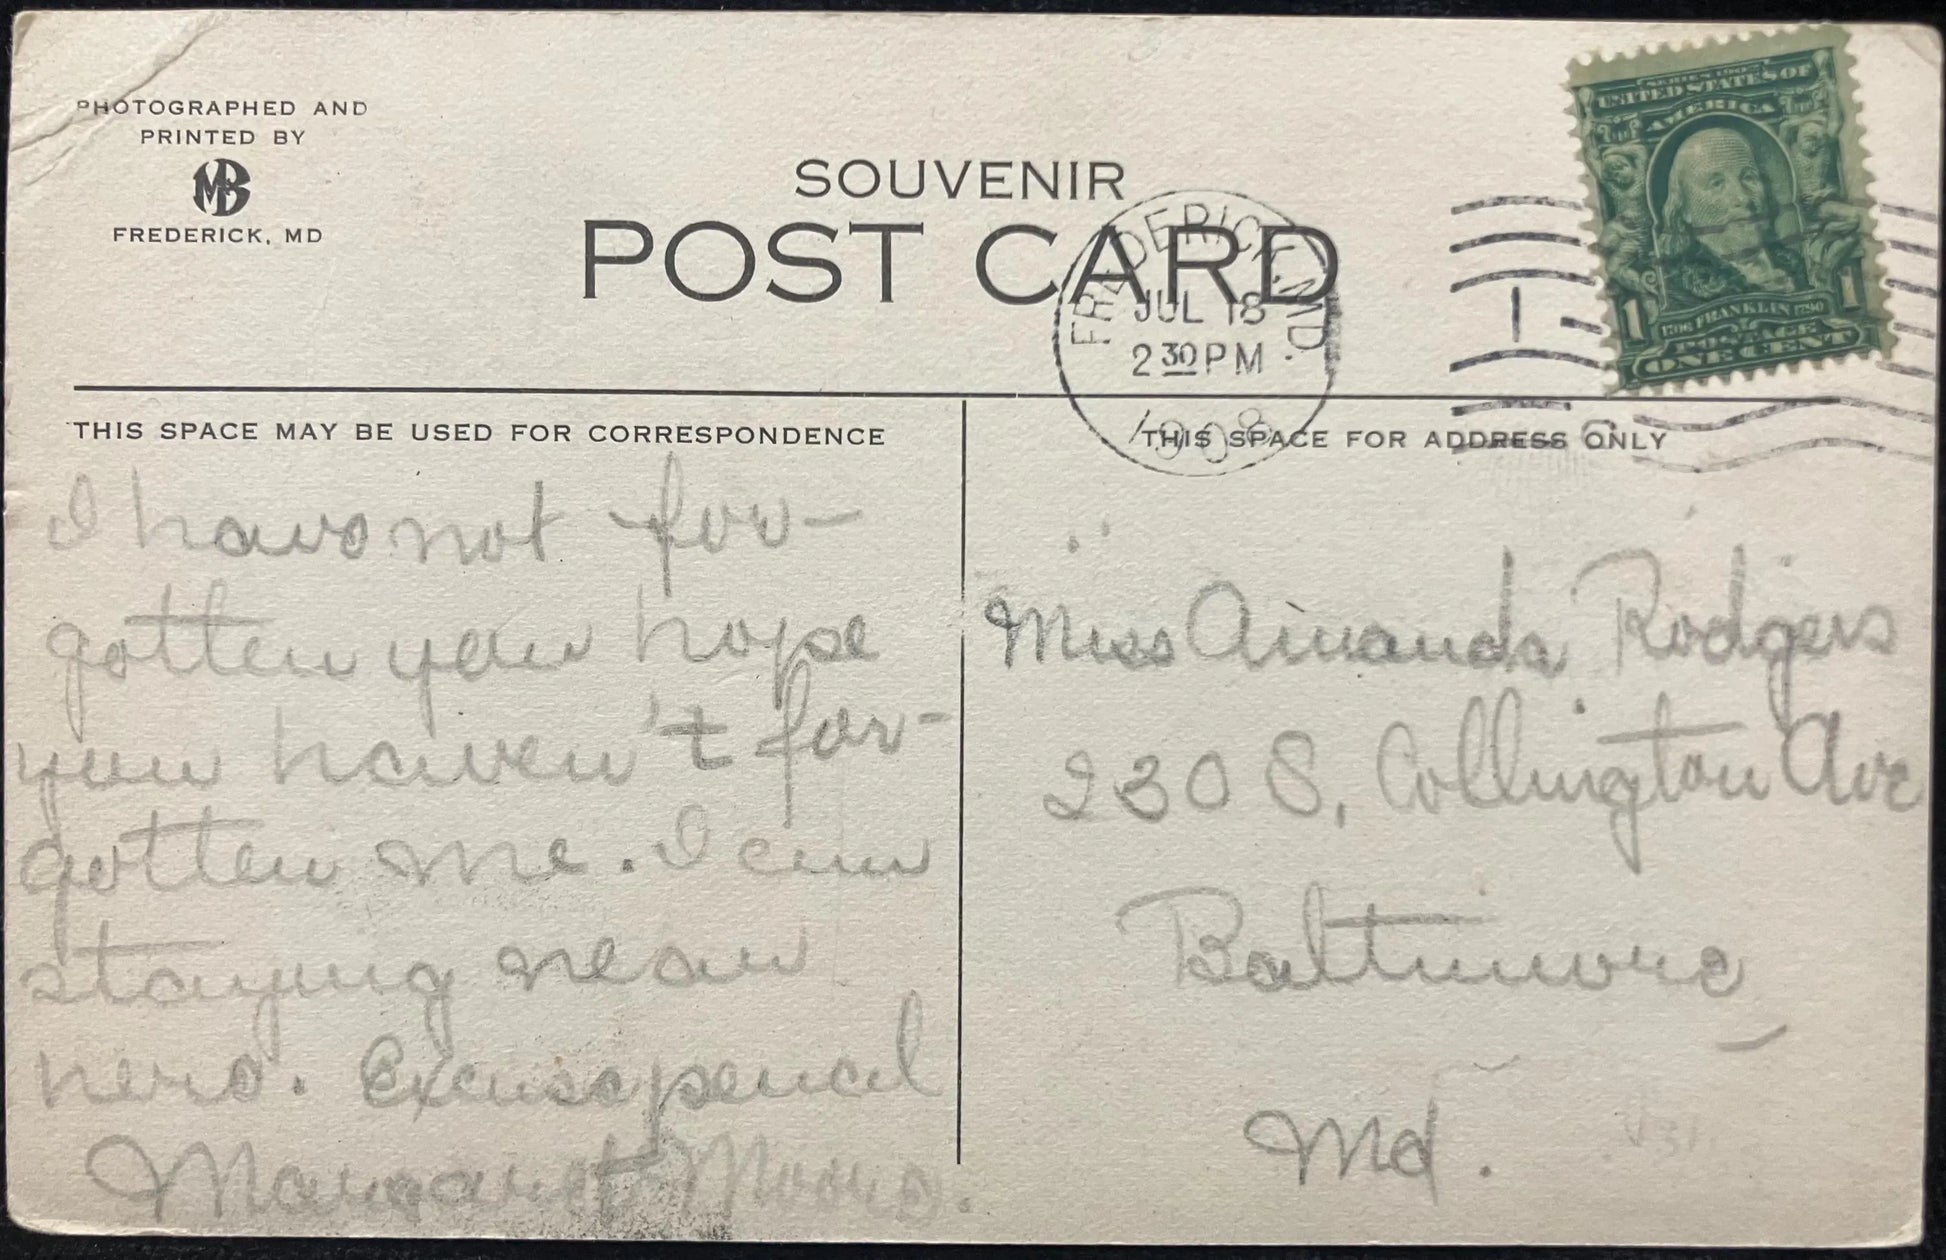 PHOTOGRAPHED AND
PRINTED BY
MB
FREDERICK, MD
SOUVENIR
POST CARD
FREDERICK, MD.
JUL 18
2 30 PM
1908
1
SERIES 1902
UNITED STATES OF
AMERICA
1 1
1706 FRANKLIN 1790
POSTAGE
ONE CENT
THIS SPACE MAY BE USED FOR CORRESPONDENCE
I have not for-
gotten you hope
you haven't for-
gotten me. I am
staying near
here. Excuse pencil
Margaret Moore.
THIS SPACE FOR ADDRESS ONLY
Miss Amanda Rodgers
230 S. Collington Ave
Baltimore
Md.